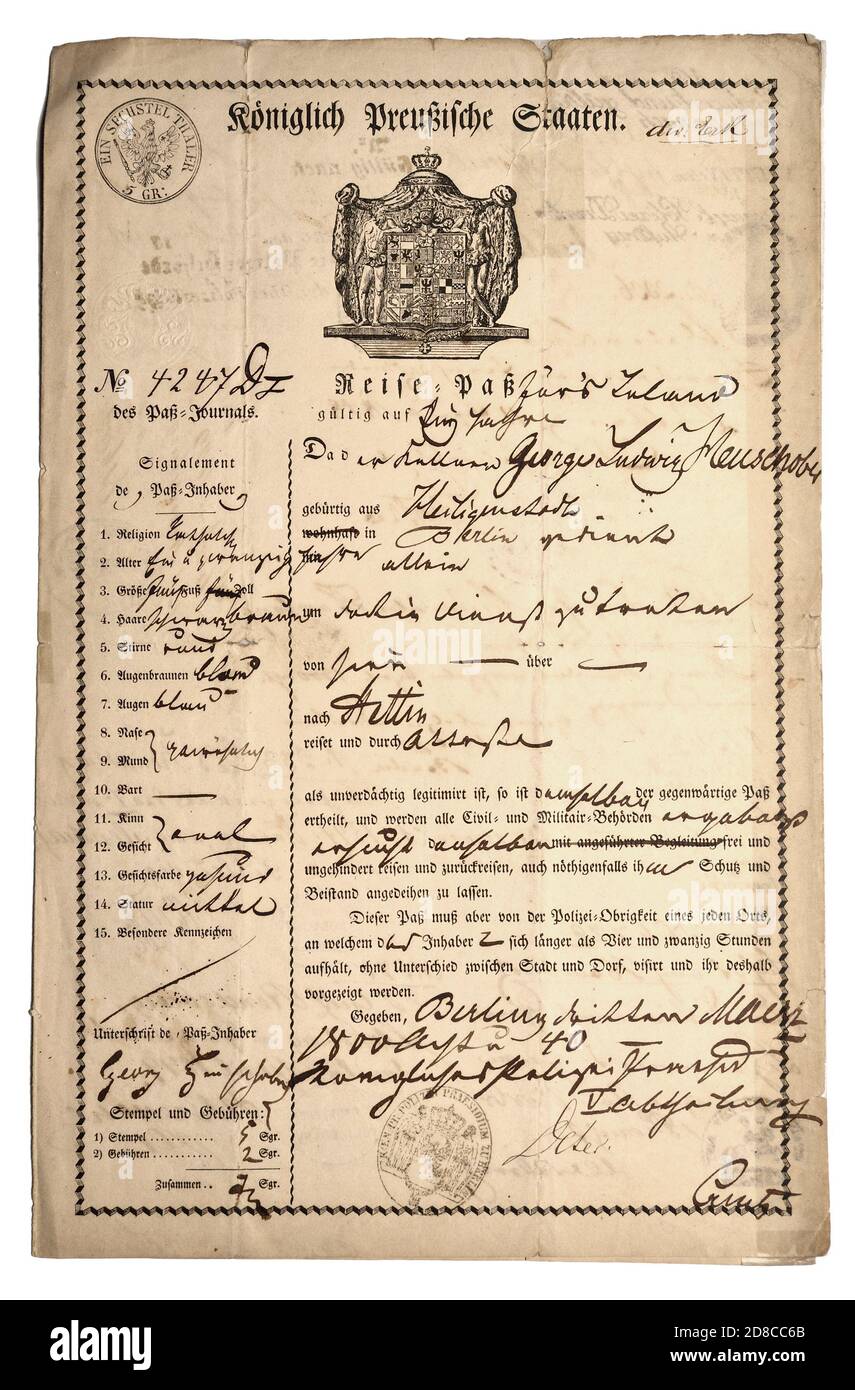 EIN SECHSTEL THALER
5 GR:
Königlich Preußische Staaten.
No 4247
des Paß-Journals.
Reise-Paß für's Inland
gültig auf Ein Jahr
Signalement
de Paß-Inhaber
1. Religion katholisch
2. Alter ein u zwanzig Jahre
3. Größe fünf Fuß fünf Zoll
4. Haare schwarzbraun
5. Stirne rund
6. Augenbraunen blond
7. Augen blau
8. Nase
9. Mund gewöhnlich
10. Bart —
11. Kinn
12. Gesicht oval
13. Gesichtsfarbe gesund
14. Statur mittel
15. Besondere Kennzeichen
Unterschrift de Paß-Inhaber
Georg Heuschober
Stempel und Gebühren:
1) Stempel ............ 5 Sgr.
2) Gebühren ........... 2 Sgr.
Zusammen .. 7 Sgr.
Da der Kellner George Ludwig Heuschober
gebürtig aus Heiligenstadt
wohnhaft in Berlin gedient
allein
um dort in Dienst zu treten
von hier — über —
nach Stettin
reiset und durch Atteste
als unverdächtig legitimirt ist, so ist demselben der gegenwärtige Paß
ertheilt, und werden alle Civil- und Militair-Behörden ergebenst
ersucht denselben mit angeführter Begleitung frei und
ungehindert reisen und zurückreisen, auch nöthigenfalls ihm Schutz und
Beistand angedeihen zu lassen.
Dieser Paß muß aber von der Polizei-Obrigkeit eines jeden Orts,
an welchem der Inhaber sich länger als Vier und zwanzig Stunden
aufhält, ohne Unterschied zwischen Stadt und Dorf, visirt und ihr deshalb
vorgezeigt werden.
Gegeben, Berlin, dritten Maerz
1800 Acht u 40
Koenigliches Polizei Praesid
Abtheilung
alamy
Image ID: 2D8CC6B
www.alamy.com